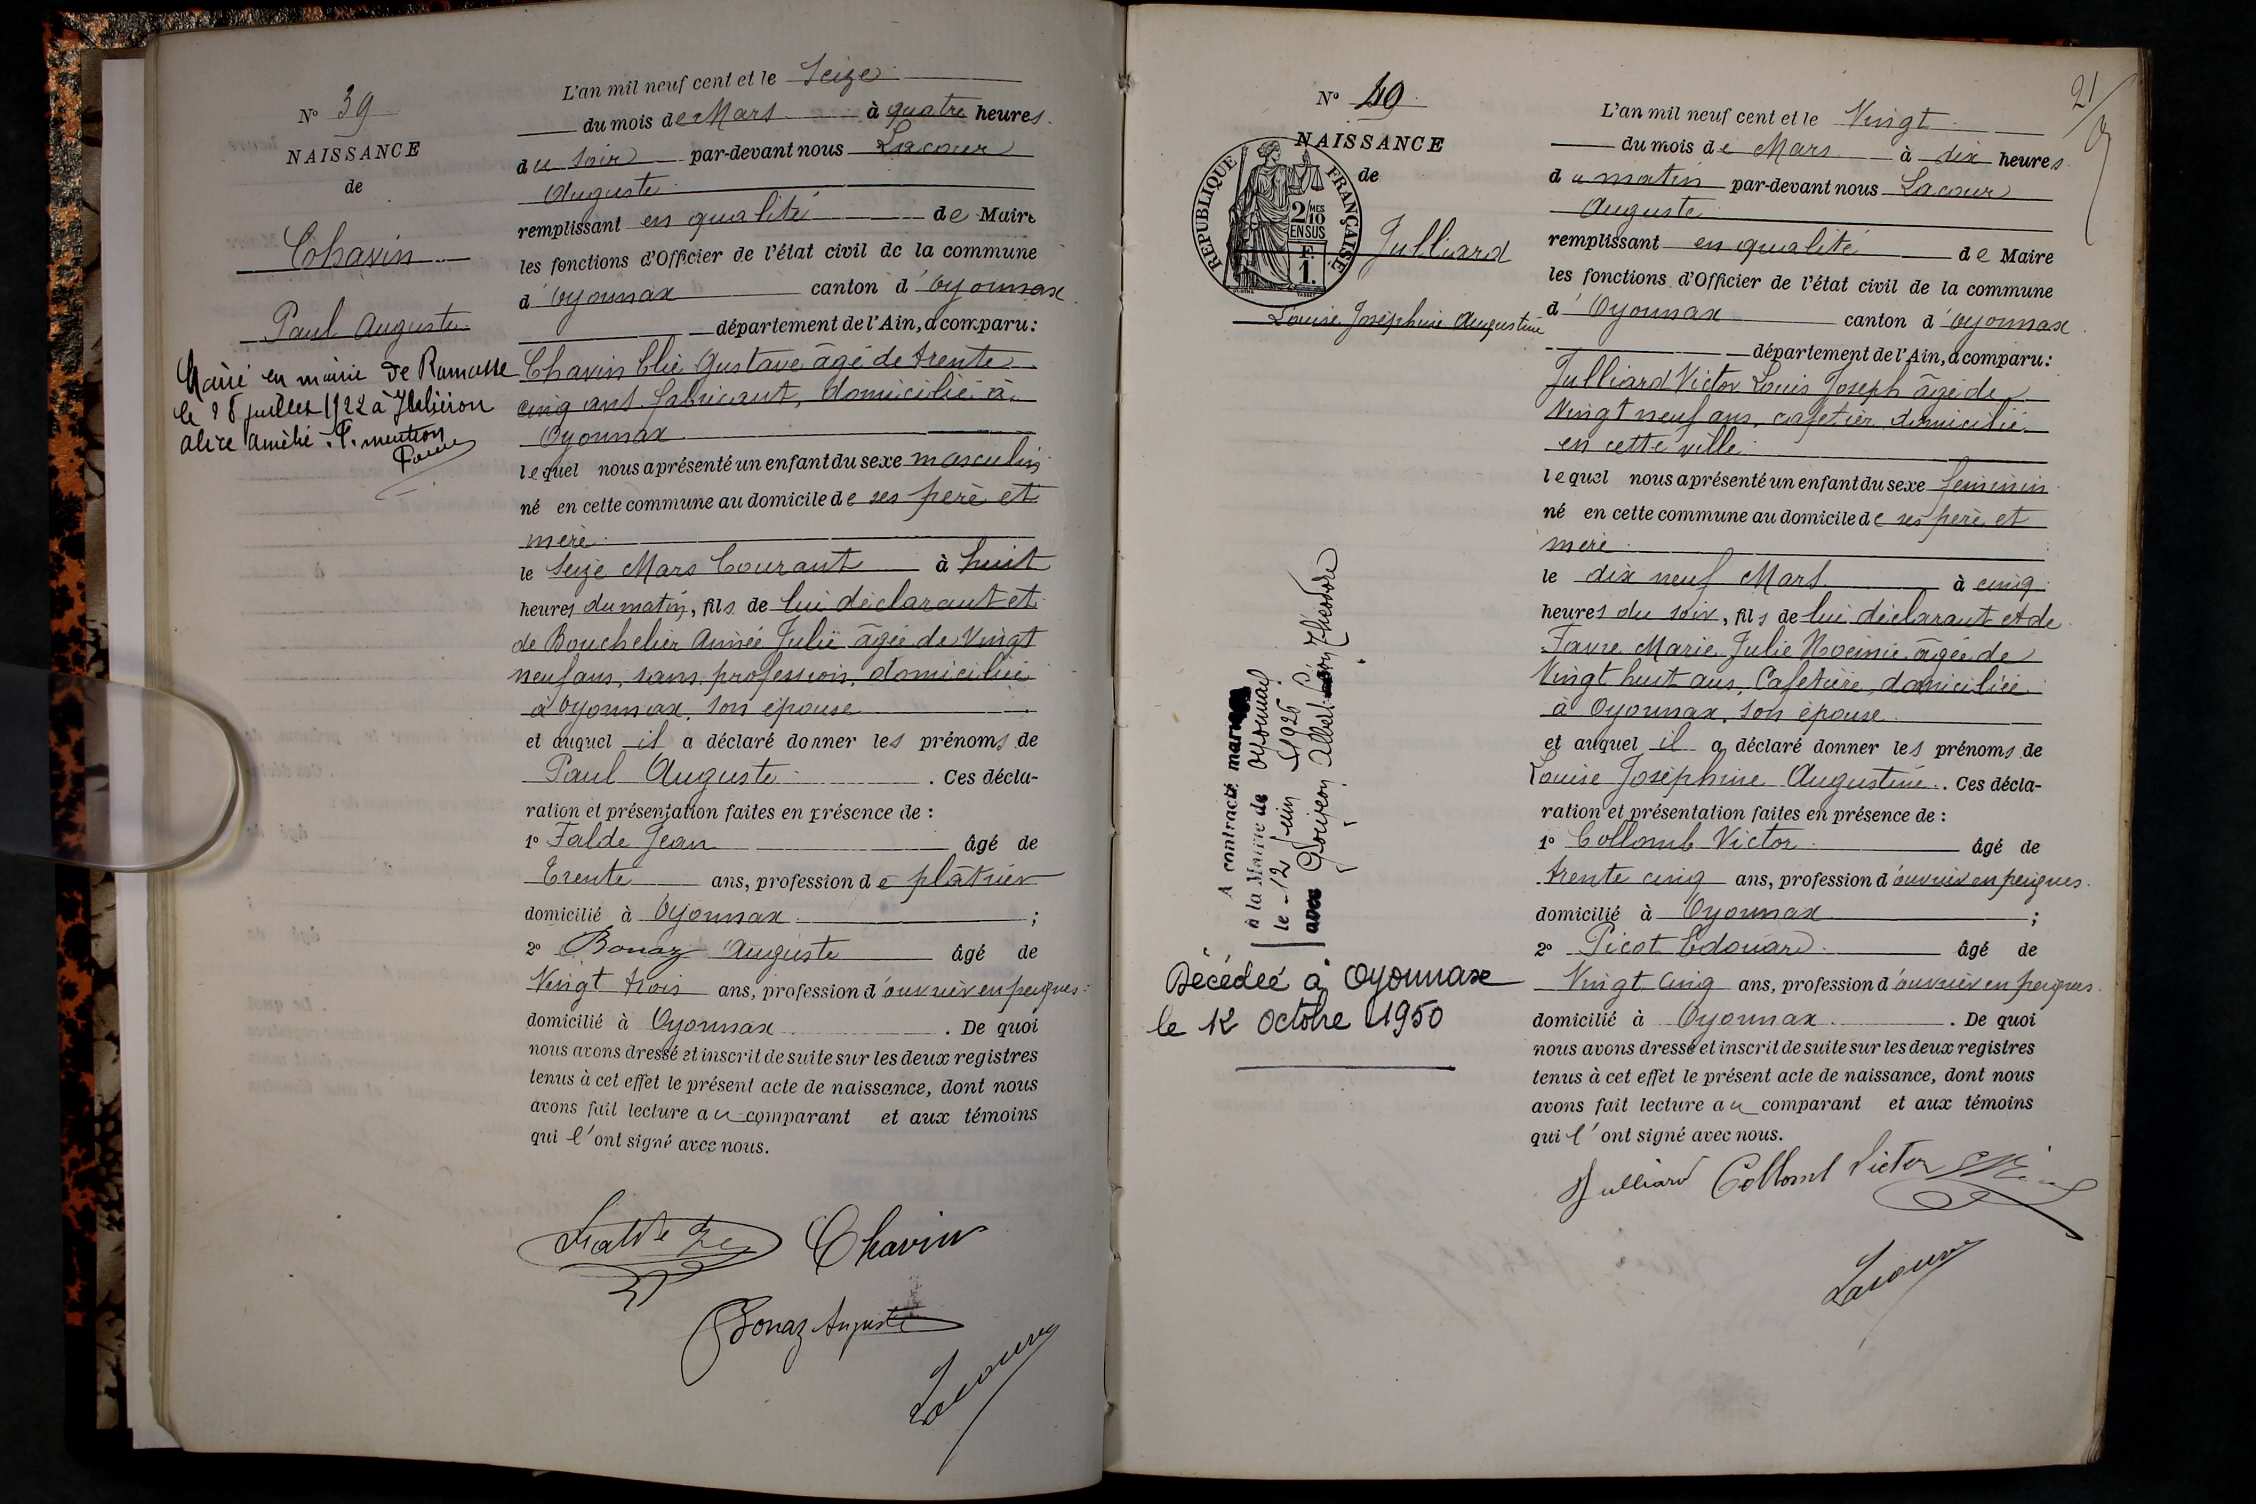 N° 39
NAISSANCE
de
Chavin
Paul Auguste
Marié en mairie de Ramasse
le 28 juillet 1922 à
alice amélie. P. mention
L'an mil neuf cent et le Seize
du mois de Mars à quatre heures
du soir par-devant nous Lacour
Auguste
remplissant en qualité de Maire
les fonctions d'Officier de l'état civil de la commune
d'Oyonnax canton d'Oyonnax
département de l'Ain, a comparu:
Chavin Elie Gustave âgé de trente
cinq ans fabricant, domicilié à
Oyonnax
lequel nous a présenté un enfant du sexe masculin
né en cette commune au domicile de ses père et
mère
le Seize Mars Courant à huit
heures du matin, fils de lui déclarant et
de Bouchelier Aimée Julie âgée de Vingt
neuf ans, sans profession, domiciliée
à Oyonnax, son épouse
et auquel il a déclaré donner les prénoms de
Paul Auguste. Ces décla-
ration et présentation faites en présence de :
1° Falde Jean âgé de
Trente ans, profession de plâtrier
domicilié à Oyonnax ;
2° Bonaz Auguste âgé de
Vingt trois ans, profession d'ouvrier en peignes
domicilié à Oyonnax. De quoi
nous avons dressé et inscrit de suite sur les deux registres
tenus à cet effet le présent acte de naissance, dont nous
avons fait lecture au comparant et aux témoins
qui l'ont signé avec nous.
Falde Chavin
Bonaz Auguste
Lacour
21
N° 40
NAISSANCE
de
RÉPUBLIQUE FRANÇAISE
2/10 MES
EN SUS
F.
1.
Julliard
Louise Joséphine Augustine
A contracté
à la Mairie de Oyonnax
le - 12 Juin 1926
avec Goujon Albert Léon Théodore
Décédée à Oyonnax
le 12 Octobre 1950
L'an mil neuf cent et le Vingt
du mois de Mars à dix heures
du matin par-devant nous Lacour
Auguste
remplissant en qualité de Maire
les fonctions d'Officier de l'état civil de la commune
d'Oyonnax canton d'Oyonnax
département de l'Ain, a comparu:
Julliard Victor Louis Joseph âgé de
Vingt neuf ans, cafetier domicilié
en cette ville
lequel nous a présenté un enfant du sexe féminin
né en cette commune au domicile de ses père et
mère
le dix neuf Mars à cinq
heures du soir, fils de lui déclarant et de
Favre Marie Julie Noémie âgée de
Vingt huit ans, Cafetière, domiciliée
à Oyonnax, son épouse
et auquel il a déclaré donner les prénoms de
Louise Joséphine Augustine. Ces décla-
ration et présentation faites en présence de :
1° Collomb Victor âgé de
trente cinq ans, profession d'ouvrier en peignes
domicilié à Oyonnax ;
2° Picot Edouard âgé de
Vingt cinq ans, profession d'ouvrier en peignes
domicilié à Oyonnax. De quoi
nous avons dressé et inscrit de suite sur les deux registres
tenus à cet effet le présent acte de naissance, dont nous
avons fait lecture au comparant et aux témoins
qui l'ont signé avec nous.
Julliard Collomb Victor
Lacour